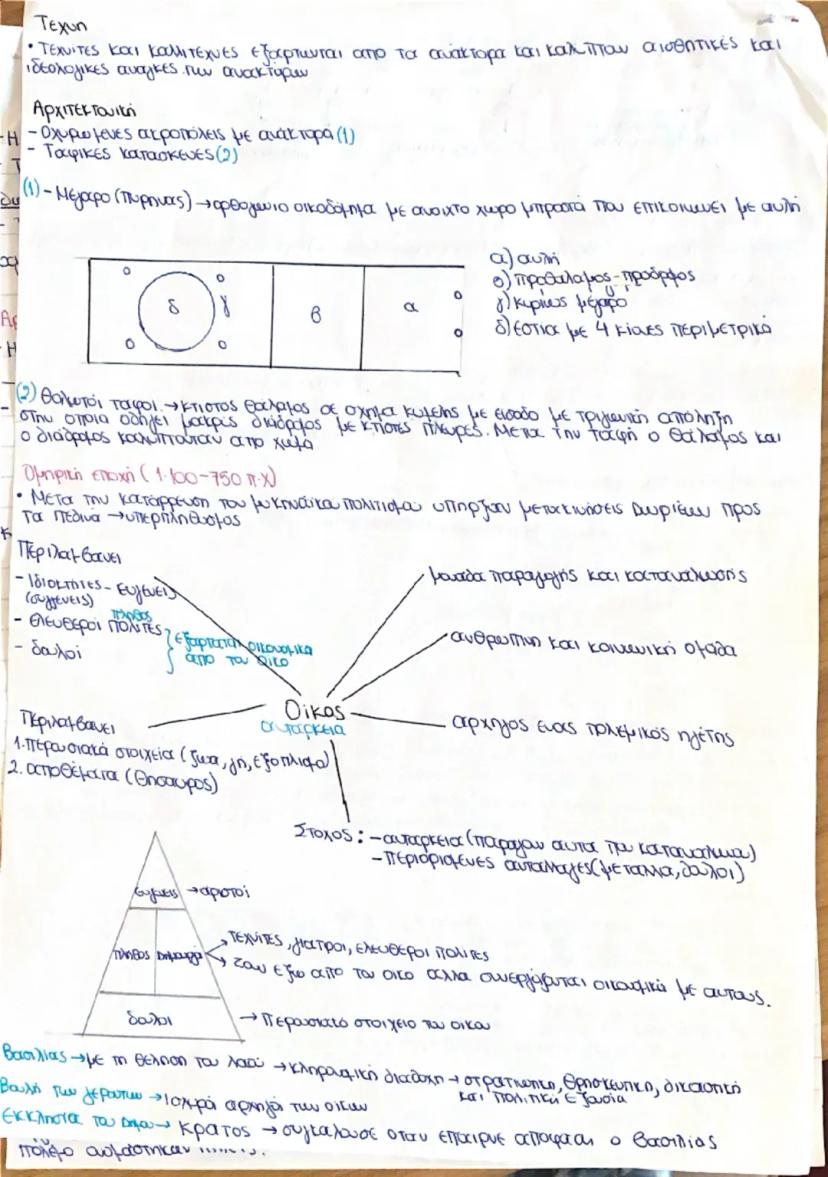 Τέχνη
• Τεχνίτες και καλλιτέχνες εξαρτώνται από τα ανάκτορα και καλύπτουν αισθητικές και
ιδεολογικές ανάγκες των ανακτόρων
Αρχιτεκτονική
- Οχυρωμένες ακροπόλεις με ανάκτορα (1)
- Ταφικές κατασκευές (2)
(1) - Μέγαρο (πυρήνας) → ορθογώνιο οικοδόμημα με ανοιχτό χώρο μπροστά που επικοινωνεί με αυλή
α) αυλή
β) προθάλαμος - πρόδομος
γ) κυρίως μέγαρο
δ) εστία με 4 κίονες περιμετρικά
δ γ β α
(2) Θολωτοί τάφοι → κτιστός θάλαμος σε σχήμα κυψέλης με είσοδο με τριγωνική απόληξη
στην οποία οδηγεί μακρύς διάδρομος με κτιστές πλευρές. Μετά την ταφή ο θάλαμος και
ο διάδρομος καλύπτονταν από χώμα
Ομηρική εποχή (1.100-750 π.Χ)
• Μετά την κατάρρευση του μυκηναϊκού πολιτισμού υπήρξαν μετακινήσεις Δωριέων προς
τα πεδινά → υπερπληθυσμός
Περιλαμβάνει
- Ιδιοκτήτες - Ευγενείς
(συγγενείς)
πλήθος
- ελεύθεροι πολίτες
- δούλοι
} εξαρτώνται οικονομικά
από τον οίκο
μονάδα παραγωγής και κατανάλωσης
ανθρώπινη και κοινωνική ομάδα
Οίκος
αυτάρκεια
αρχηγός ένας πολεμικός ηγέτης
Περιλαμβάνει
1. περιουσιακά στοιχεία (ζώα, γη, εξοπλισμό)
2. αποθέματα (θησαυρός)
Στόχος: - αυτάρκεια (παράγουν αυτά που καταναλώνουν)
- περιορισμένες ανταλλαγές (μέταλλα, δούλοι)
ευγενείς → άριστοι
πλήθος δημιουργοί
→ τεχνίτες, γιατροί, ελεύθεροι πολίτες
→ ζουν έξω από τον οίκο αλλά συνεργάζονται οικονομικά με αυτούς.
δούλοι → περιουσιακό στοιχείο του οίκου
Βασιλιάς → με τη θέληση του λαού → κληρονομική διαδοχή → στρατιωτική, θρησκευτική, δικαστική
και πολιτική εξουσία
Βουλή των γερόντων → Ισχυροί αρχηγοί των οίκων
Εκκλησία του Δήμου → κράτος → συγκαλούσε όταν έπαιρνε απόφαση ο βασιλιάς